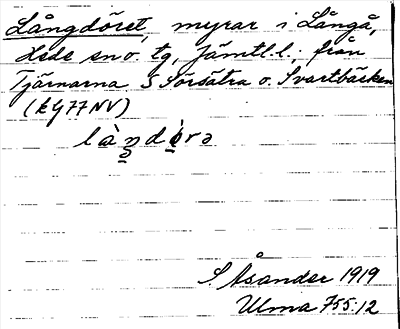 Långdöret, myrar i Långå,
Hede sn o. tg, Jämtl. l.; från
Tjärnarna S Sörsätra o. Svartbäcken
(k G77NV)
S. Åsander 1919
Ulma 755:12